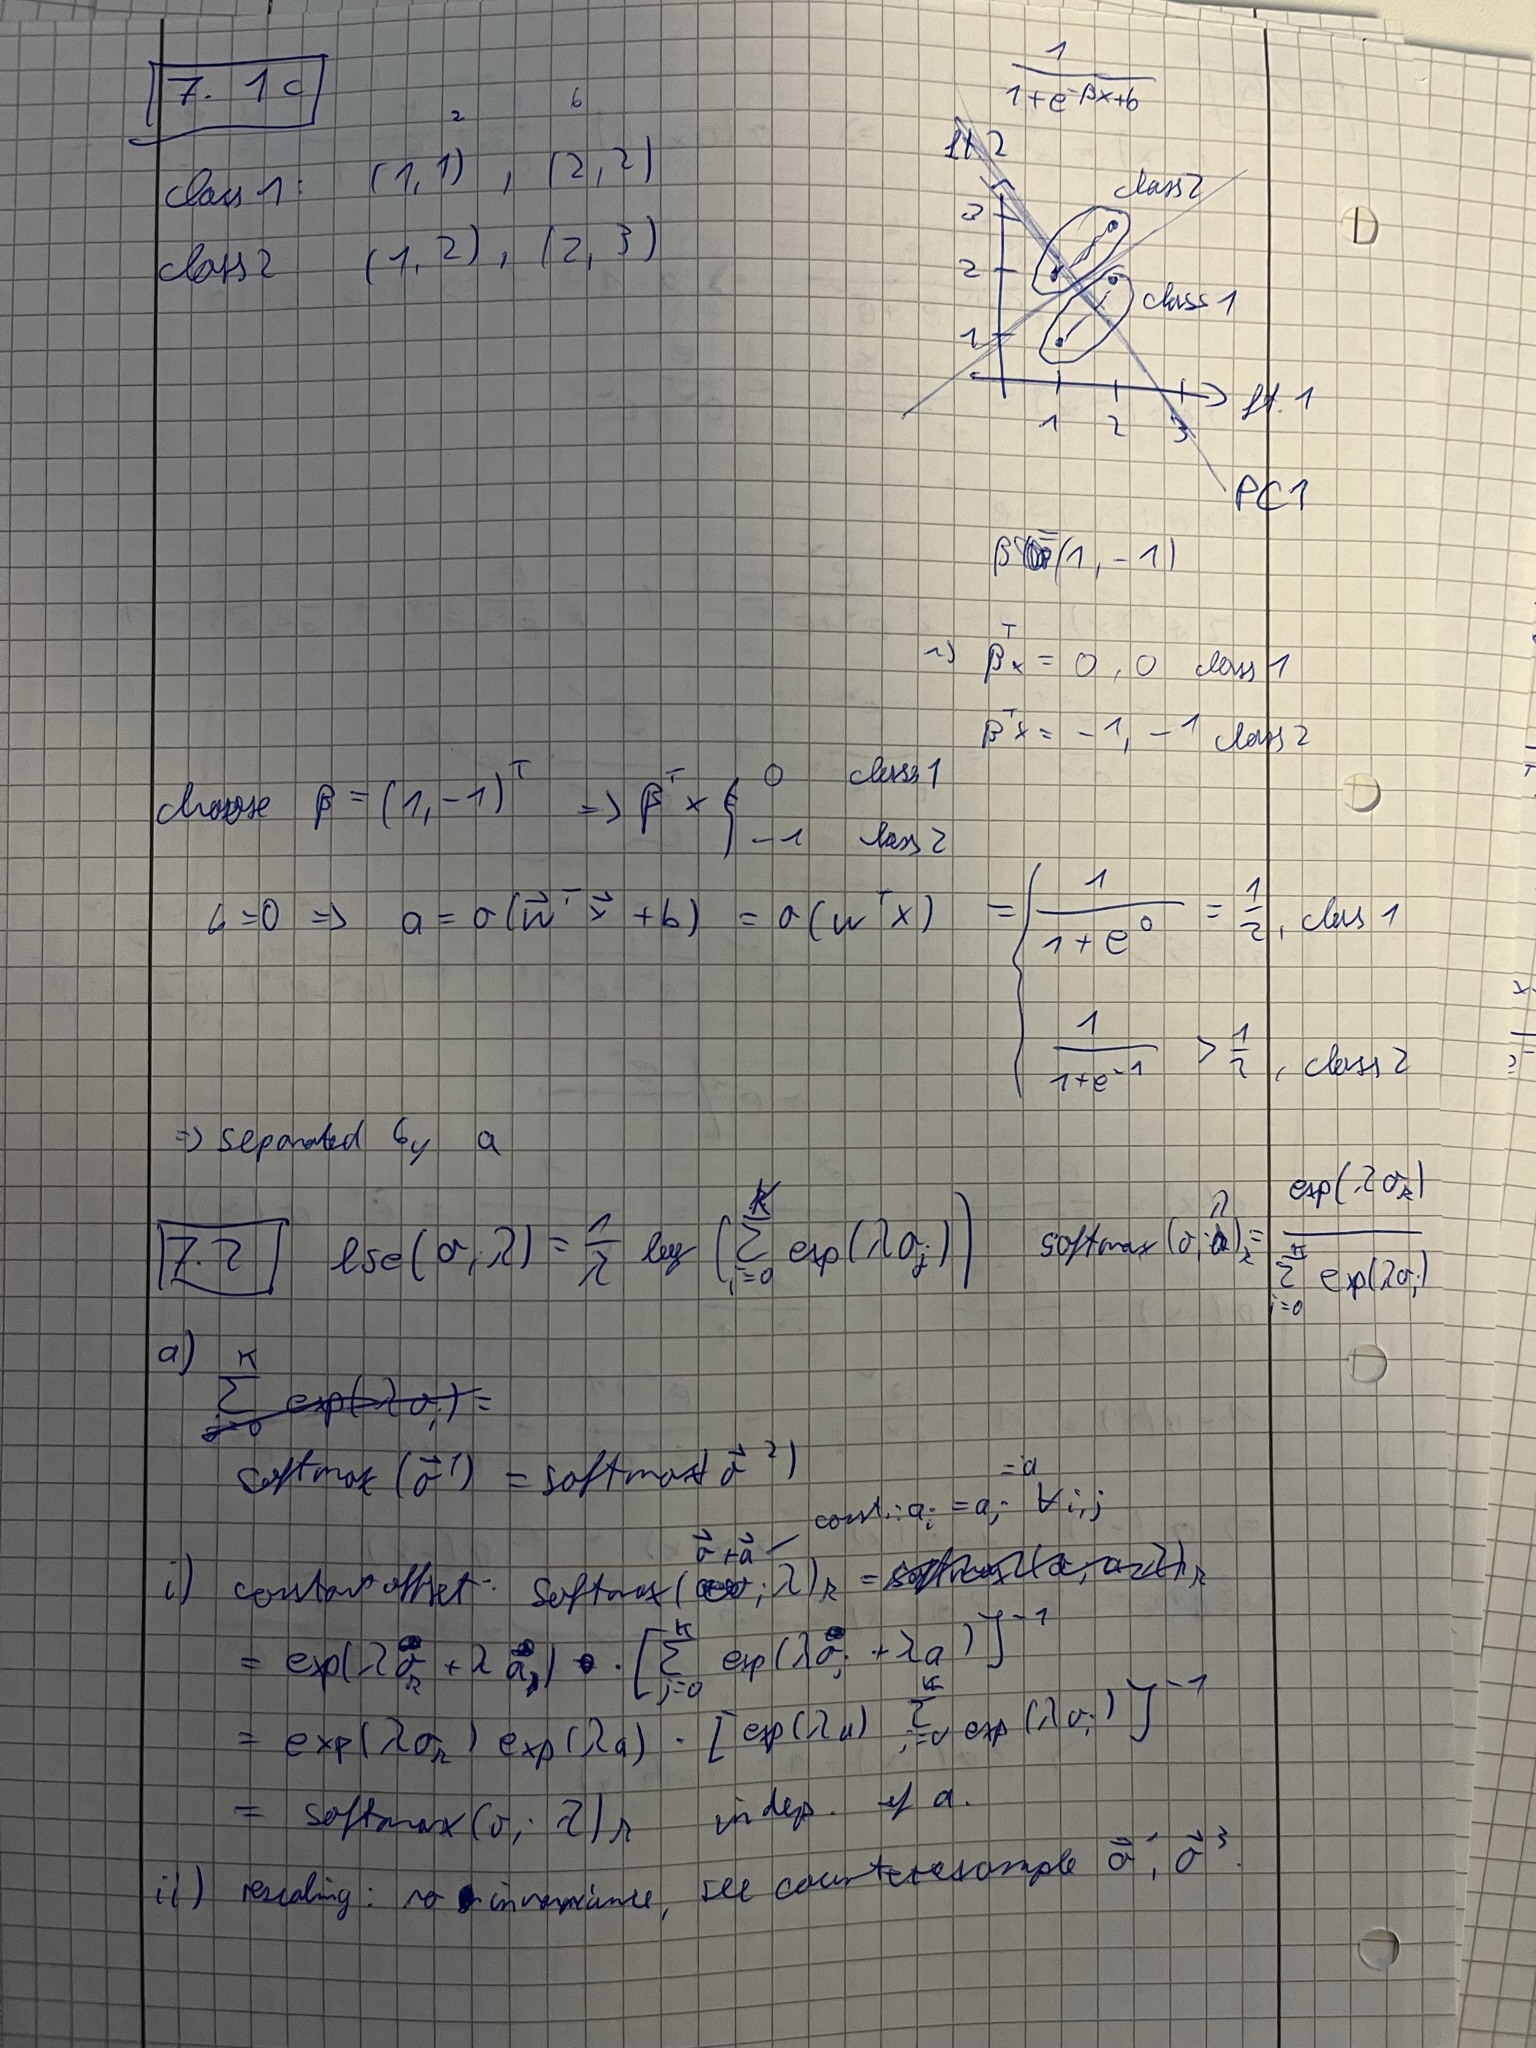 7. 1c
2 6
class 1: (1,1), (2,2)
class 2 (1,2), (2,3)
1/(1+e^-βx+b)
ft. 2
class 2
3
2
class 1
1
ft. 1
1 2 3
PC1
β = (1,-1)
~> β^T x = 0, 0 class 1
β^T x = -1, -1 class 2
choose β = (1,-1)^T => β^T x { 0 class 1
-1 class 2
b=0 => a = σ(w⃗^T x⃗ + b) = σ(w^T x) = { 1/(1+e^0) = 1/2, class 1
1/(1+e^-1) > 1/2, class 2
=> separated by a
7.2 lse(σ, λ) = 1/λ log (Σ_{i=0}^K exp(λσ_j)) softmax(σ; λ)_k = exp(λσ_k) / Σ_{i=0}^K exp(λσ_i)
a) Σ_{j=0}^K exp(λσ_j) =
softmax(σ⃗^1) = softmax(σ⃗^2)
= a
const.: a_i = a_j ∀i,j
i) constant offset: softmax(σ⃗+a⃗; λ)_k =
= exp(λσ_k + λa) · [Σ_{j=0}^K exp(λσ_j + λa)]^-1
= exp(λσ_k) exp(λa) · [exp(λa) Σ_{j=0}^K exp(λσ_j)]^-1
= softmax(σ; λ)_k indep. of a.
ii) rescaling: no invariance, see counterexample σ⃗^1, σ⃗^3.